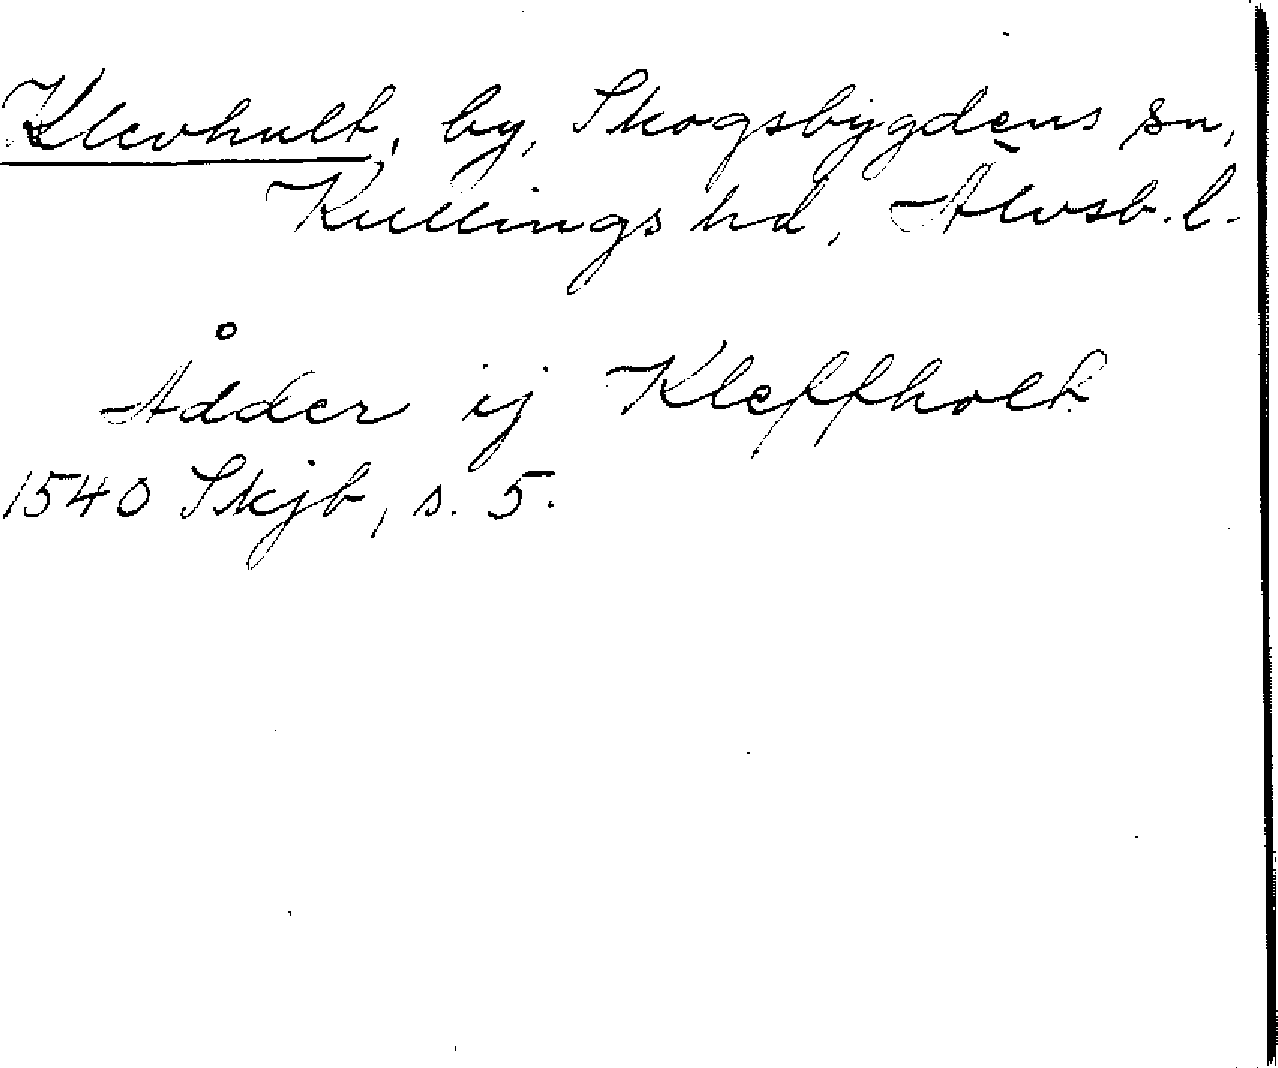 Klevhult, by, Skogsbygdens sn,
Kullings hd, Älvsb. l.
Ådder ij Kleffholt
1540 Skjb, s. 5.